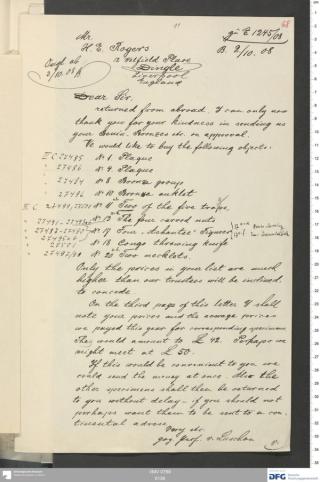 11
68
Mr.
H. E. Rogers
Dingle
Liverpool
England
E 1245/08
B. 2/10. 08
2/10. 08
Dear Sir.
returned from abroad I can only now
thank you for your kindness in sending us
your Benin Bronzes etc. on approval.
We would like to buy the following objects:
III C 27485 No 1 Plaque
27486 No 4 Plaque
27484 No 8 Bronze group
No 10 Bronze anklet
III C No 11 Two of the five
No 12 The four carved nuts
No 17 Four Ashantee Figures
27501 No 18 Congo throwing knife
No 20 Two necklets.
Only the prices in your list are much
higher than our trustees will be inclined
to concede.
On the third page of this letter I shall
note your prices and the average prices
we payed this year for corresponding specimens
They would amount to £ 42. Perhaps we
might meet at £ 50.
If this would be convenient to you we
could send the money at once. Also the
other specimens shall then be returned
to you without delay - if you should not
perhaps want them to be sent to a con-
tinental adress.
Prof. v. Luschan
DFG